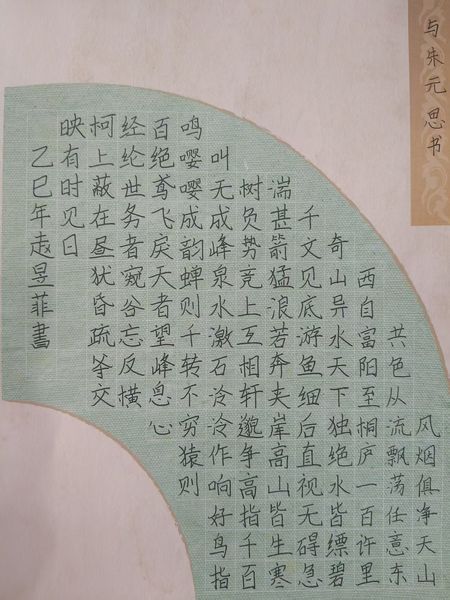 与朱元思书
风烟俱净天山
共色从流飘荡任意东
西自富阳至桐庐一百许里
奇山异水天下独绝水皆缥碧
千文见底游鱼细后直视无碍急
湍甚箭猛浪若奔夹岸高山皆生寒
树负势竞上互相轩邈争高指千百
叫无成峰泉水激石泠泠作响好鸟指
鸣嘤嘤成韵蝉则千转不穷猿则
百绝鸢飞戾天者望峰息心
经纶世务者窥谷忘反横
柯上蔽在昼犹昏疏交
映有时见日
乙巳年赵昱菲書